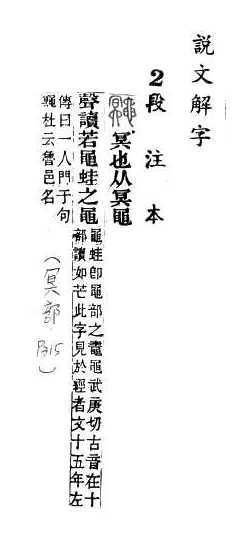 說文解字
2段注本
鼆冥也从冥黽
聲讀若黽蛙之黽
黽蛙卽黽部之鼃黽武庚切古音在十
部讀如芒此字見於經者文十五年左
傳曰一人門于句
鼆杜云魯邑名
(冥部 P315)